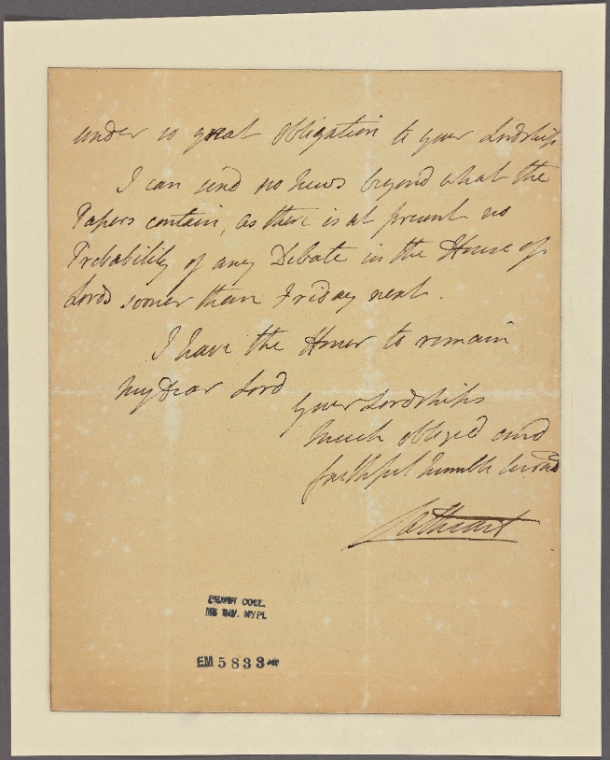 under so great Obligation to your Lordship
I can send no News beyond what the
Papers contain, as there is at present no
Probability of any Debate in the House of
Lords sooner than Friday next.
I have the Honor to remain
My Dear Lord
your Lordships
much obliged and
faithful humble Servant
Cathcart
EMMET COLL.
MS DIV. NYPL
EM 5833